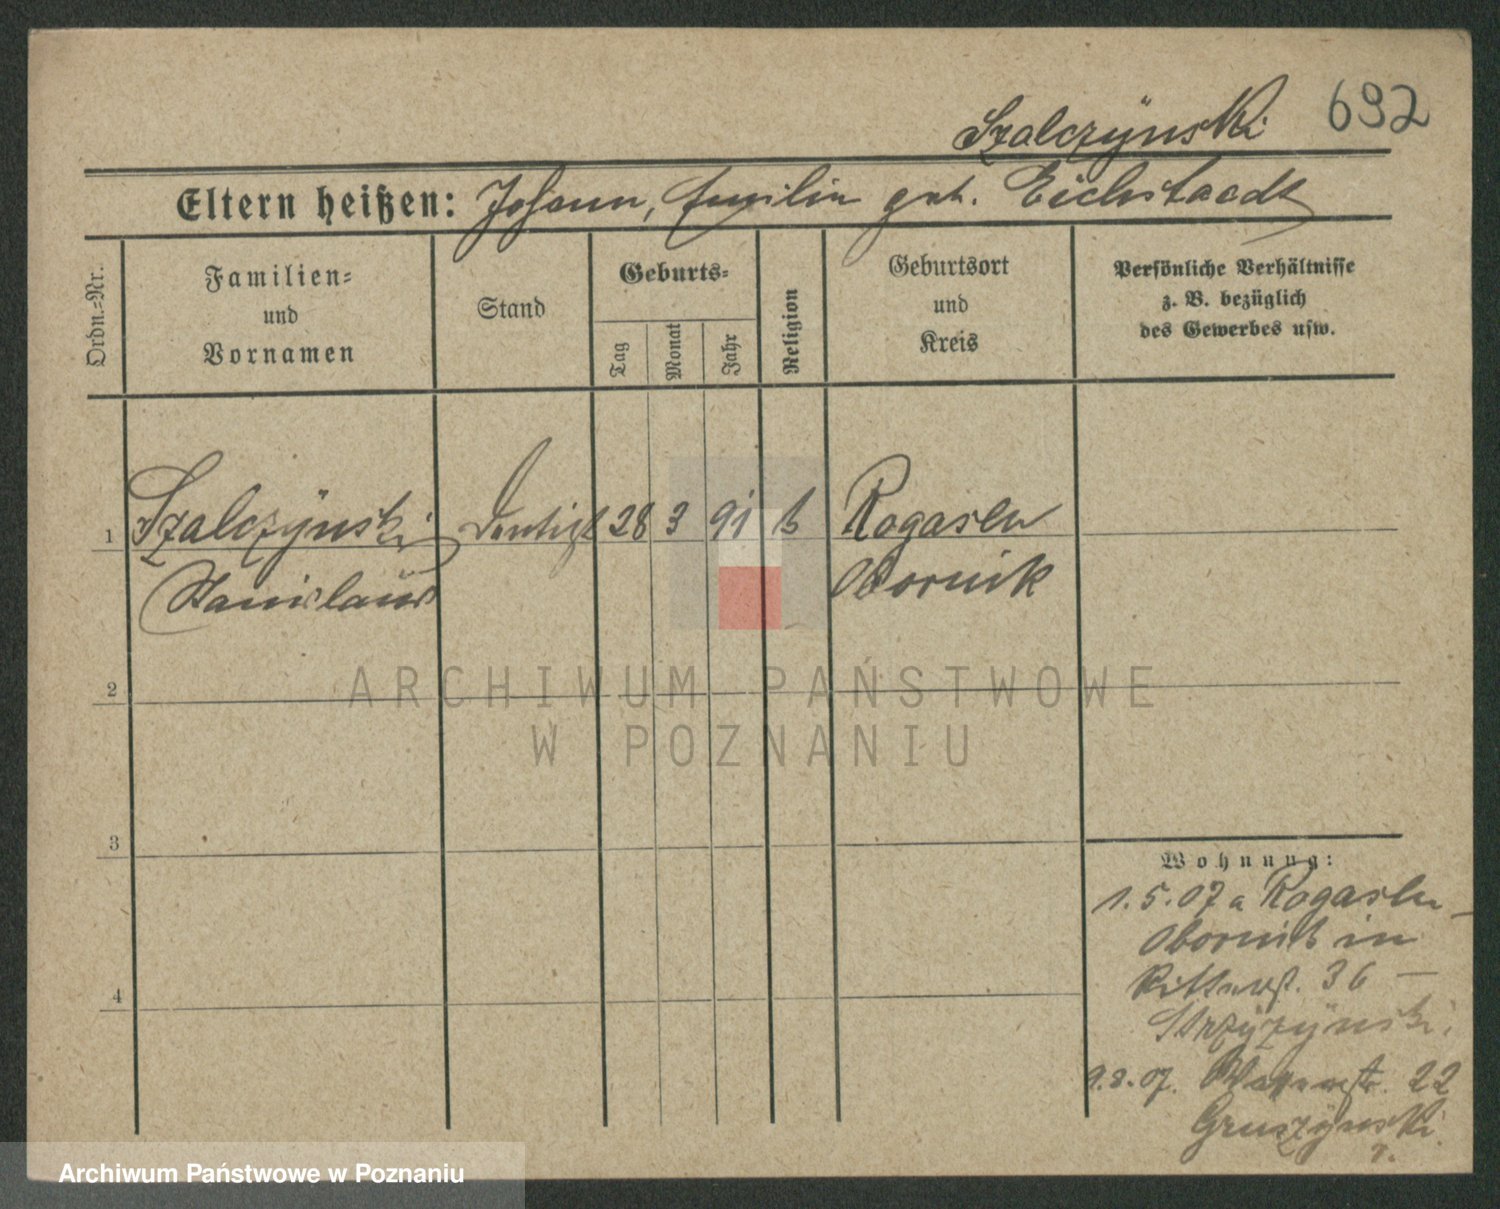 Szalczÿnski 692
Eltern heißen: Johann, Emilie geb. Eichstaedt
Ordn.=Nr.
Familien=
und
Vornamen
Stand
Geburts=
Tag
Monat
Jahr
Religion
Geburtsort
und
Kreis
Persönliche Verhältnisse
z. B. bezüglich
des Gewerbes usw.
1 Szalczÿnski 28 3 91 k Rogasen
Stanislaus Obornik
2
3
4
Wohnung:
1.5.07 a Rogasen
Obornik in
Ritterst. 36 —
Strzÿzÿnski.
9.8.07. 22
Gruszÿnski
ARCHIWUM PAŃSTWOWE
W POZNANIU
Archiwum Państwowe w Poznaniu